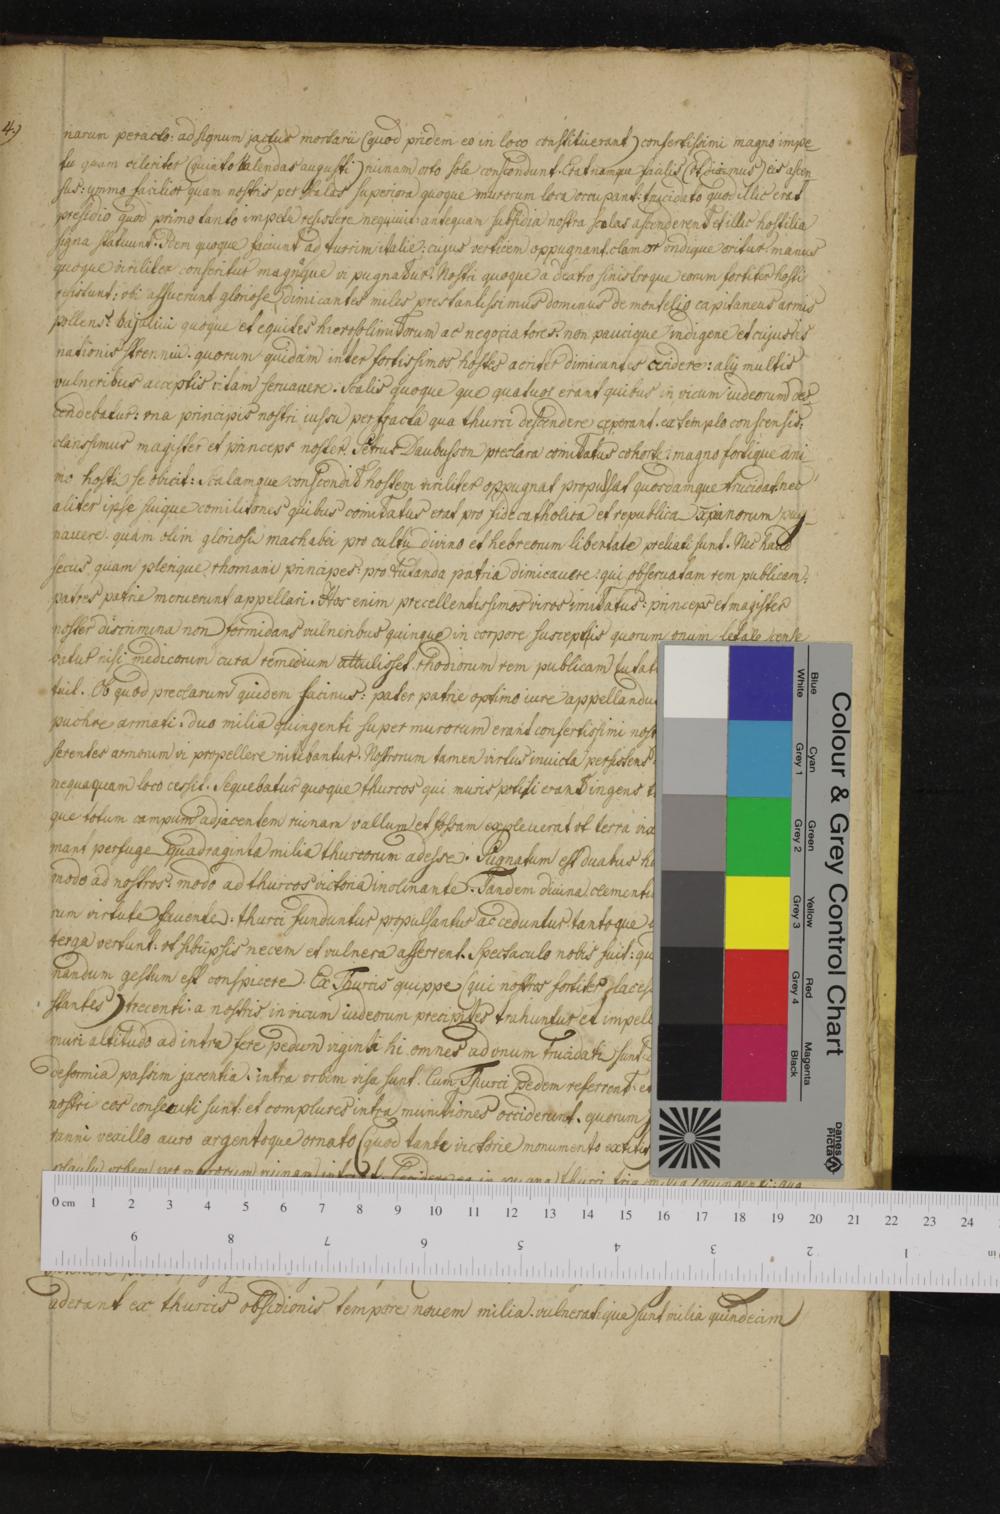 4.)
narum peracto: ad signum jactus mortarii (quod pridem eo in loco constituerant) confertissimi magno impe
tu quam celeriter (quinto kalendas augusti) ruinam orto sole conscendunt. Erat namque facilis (ut diximus) eis ascen
sus: ymmo facilior quam nostris per scalas superiora quoque murorum loca occupant: trucidato quod illic erat
presidio quod primo tanto impetu resistere nequivit: antequam subsidia nostra scalas ascenderent et illic hostilia
signa statuunt. Idem quoque faciunt ad turrim italie: cujus verticem oppugnant. clamor undique oritur manus
quoque viriliter conseritur magnque vi pugnatur. Nostri quoque a dextro sinistroque eorum fortiter hosti
resistunt: ubi affuerunt gloriose dimicantes miles prestantissimus dominus de montelio capitaneus armis
pollens: bajulivi quoque et equites hierosolimitorum ac negociatores: non paucique indigene et cujusvis
nationis strennui. quorum quidam inter fortissimos hostes acriter dimicantes cecidere: alij multis
vulneribus acceptis vitam servavere. Scalis quoque que quatuor erant quibus in vicum iudeorum des
cendebatur: una principis nostri iussu perfracta qua thurci descendere ceperant. extemplo conscensis:
clarissimus magister et princeps noster. Petrus Daubusson preclara comitatus cohorte: magno fortique ani
mo hosti se obicit: Scalamque conscendit hostem viriliter oppugnat propulsat quosdamque trucidat. nec
aliter ipse suique comilitones quibus comitatus erat pro fide catholica et republica xpianorum pug
navere. quam olim gloriosi machabei pro cultu divino et hebreorum libertate preliati sunt. Nec haud
secus. quam plerique rhomani principes: pro tutanda patria dimicavere: qui observatam rem publicam:
patres patrie meruerunt appellari. Hos enim precellentissimos viros imitatus: princeps et magister
noster discrimina non formidans vulneribus quinque in corpore susceptis quorum unum letale cense
batur nisi medicorum cura remedium attulisset. rhodiorum rem publicam tutat
tuit. Ob quod preclarum quidem facinus: pater patrie optimo iure appellandu
puchre armati: duo milia quingenti super murorum erant confertissimi nost
ferentes armorum vi propellere nitebantur. Nostrorum tamen virtus invicta persistens
nequaquam loco cessit. Sequebatur quoque thurcos qui muris potiti erant ingens t
que totum campum adjacentem ruinam vallum et fossam expleverat ut terra vix
mant perfuge quadraginta milia thurcorum adesse. Pugnatum est duabus h
modo ad nostros: modo ad thurcos victoria inclinante. Tandem divina clementi
rum virtute favente: thurci funduntur propulsantur ac ceduntur. tantoque
terga vertunt. ut sibiipsis necem et vulnera afferrent. Spectaculo nobis fuit: qu
nandum gestum est conspicere. Ex Thurcis quippe (qui nostros fortiter laces
stantes) trecenti. a nostris in vicum iudeorum precipites trahuntur et impell
muri altitudo ad intra fere pedum viginti hi omnes ad unum trucidati sunt
deformia passim jacentia: intra urbem visa sunt. Cum Thurci pedem referrent: et
nostri eos consecuti sunt. et complures intra munitiones occiderunt. quorum
ranni vexillo auro argentoque ornato (quod tante victorie monumento extitit
0 cm 1 2 3 4 5 6 7 8 9 10 11 12 13 14 15 16 17 18 19 20 21 22 23 24
9 8 7 6 5 4 3 2 1 in
aderant ex thurcis obsidionis tempore novem milia. vulneratique sunt milia quindecim
Colour & Grey Control Chart
Blue Cyan Green Yellow Red Magenta
White Grey 1 Grey 2 Grey 3 Grey 4 Black
DANES PICTA